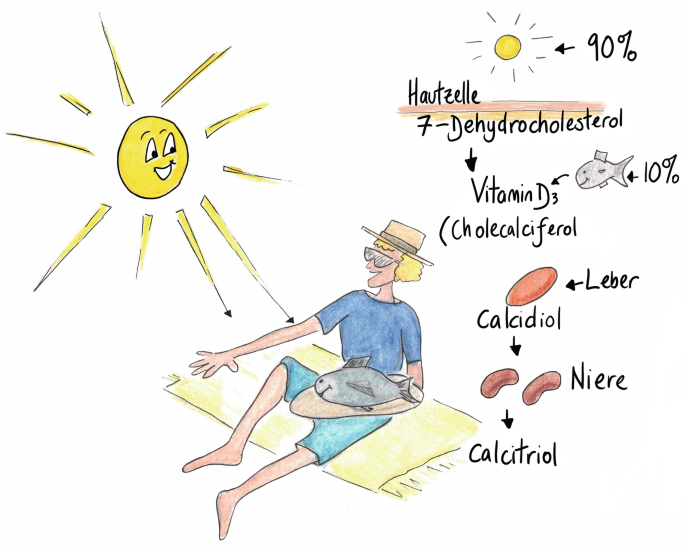 90%
Hautzelle
7-Dehydrocholesterol
Vitamin D3
10%
(Cholecalciferol
Leber
Calcidiol
Niere
Calcitriol